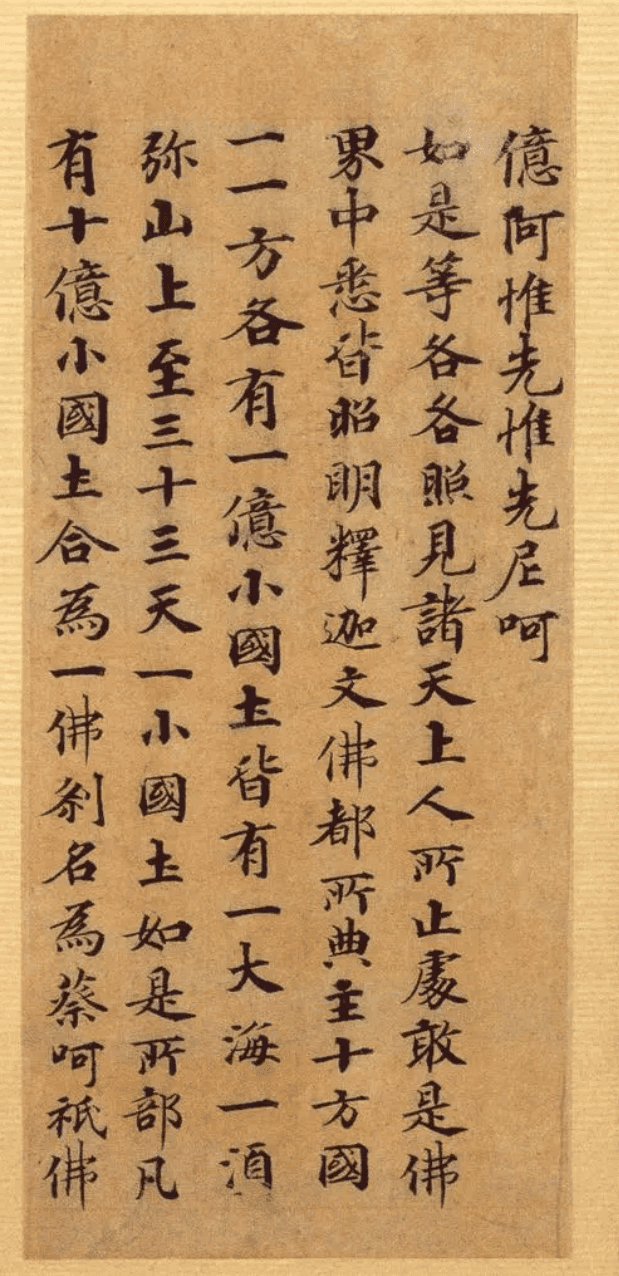 億阿惟先惟先尼呵
如是等各各照見諸天上人所止處敢是佛
界中悉皆昭明釋迦文佛都所典主十方國
一一方各有一億小國土皆有一大海一湏
弥山上至三十三天一小國土如是所部凡
有十億小國土合為一佛剎名為蔡呵祇佛